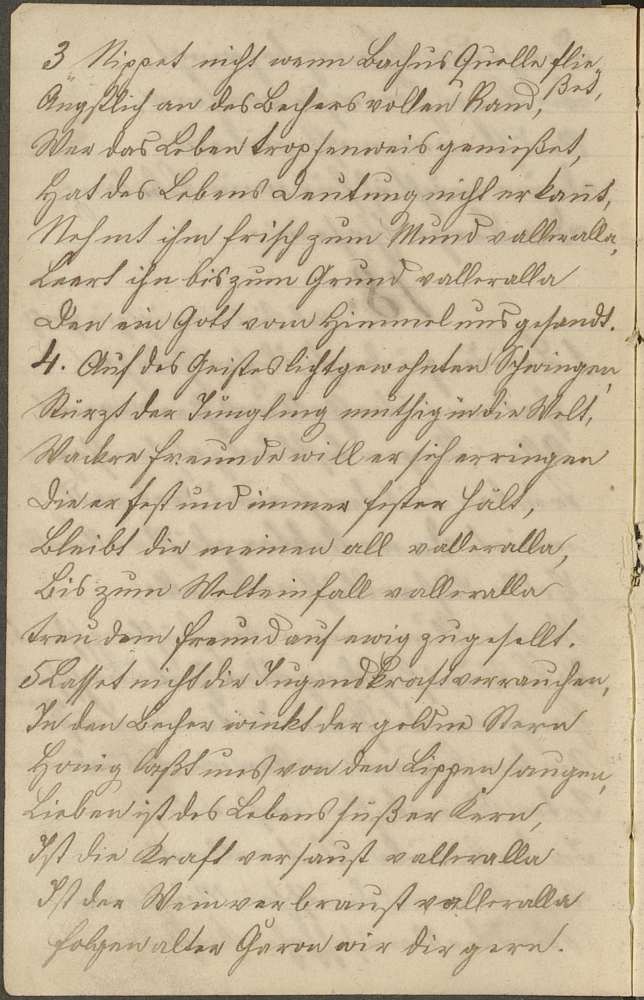 3 Nippet nicht wenn Bachus Quelle flie
ßet,
Ängstlich an des Bechers vollen Rand,
Wer das Leben tropfenweis genießet,
Hat des Lebens Deutung nicht erkannt,
Nehmt ihn frisch zum Mund valleralla,
Leert ihn bis zum Grund valleralla
Den ein Gott vom Himmel uns gesandt.
4. Auf des Geistes lichtgewohnten Schwingen,
Stürzt der Jüngling muthig in die Welt,
Wackre Freunde will er sich erringen
Die er fest und immer fester hält,
Bleibt die meinen all valleralla,
Bis zum Welteinfall valleralla
Treu dem Freund auf ewig zugesellt.
5 Lasset nicht die Jugendkraft verrauchen,
In den Becher winkt der goldne Stern
Honig laßt uns von den Lippen saugen,
Lieben ist des Lebens süßer Kern,
Ist die Kraft versaust valleralla
Ist der Wein verbraust valleralla
folgen alter Charon wir dir gern.